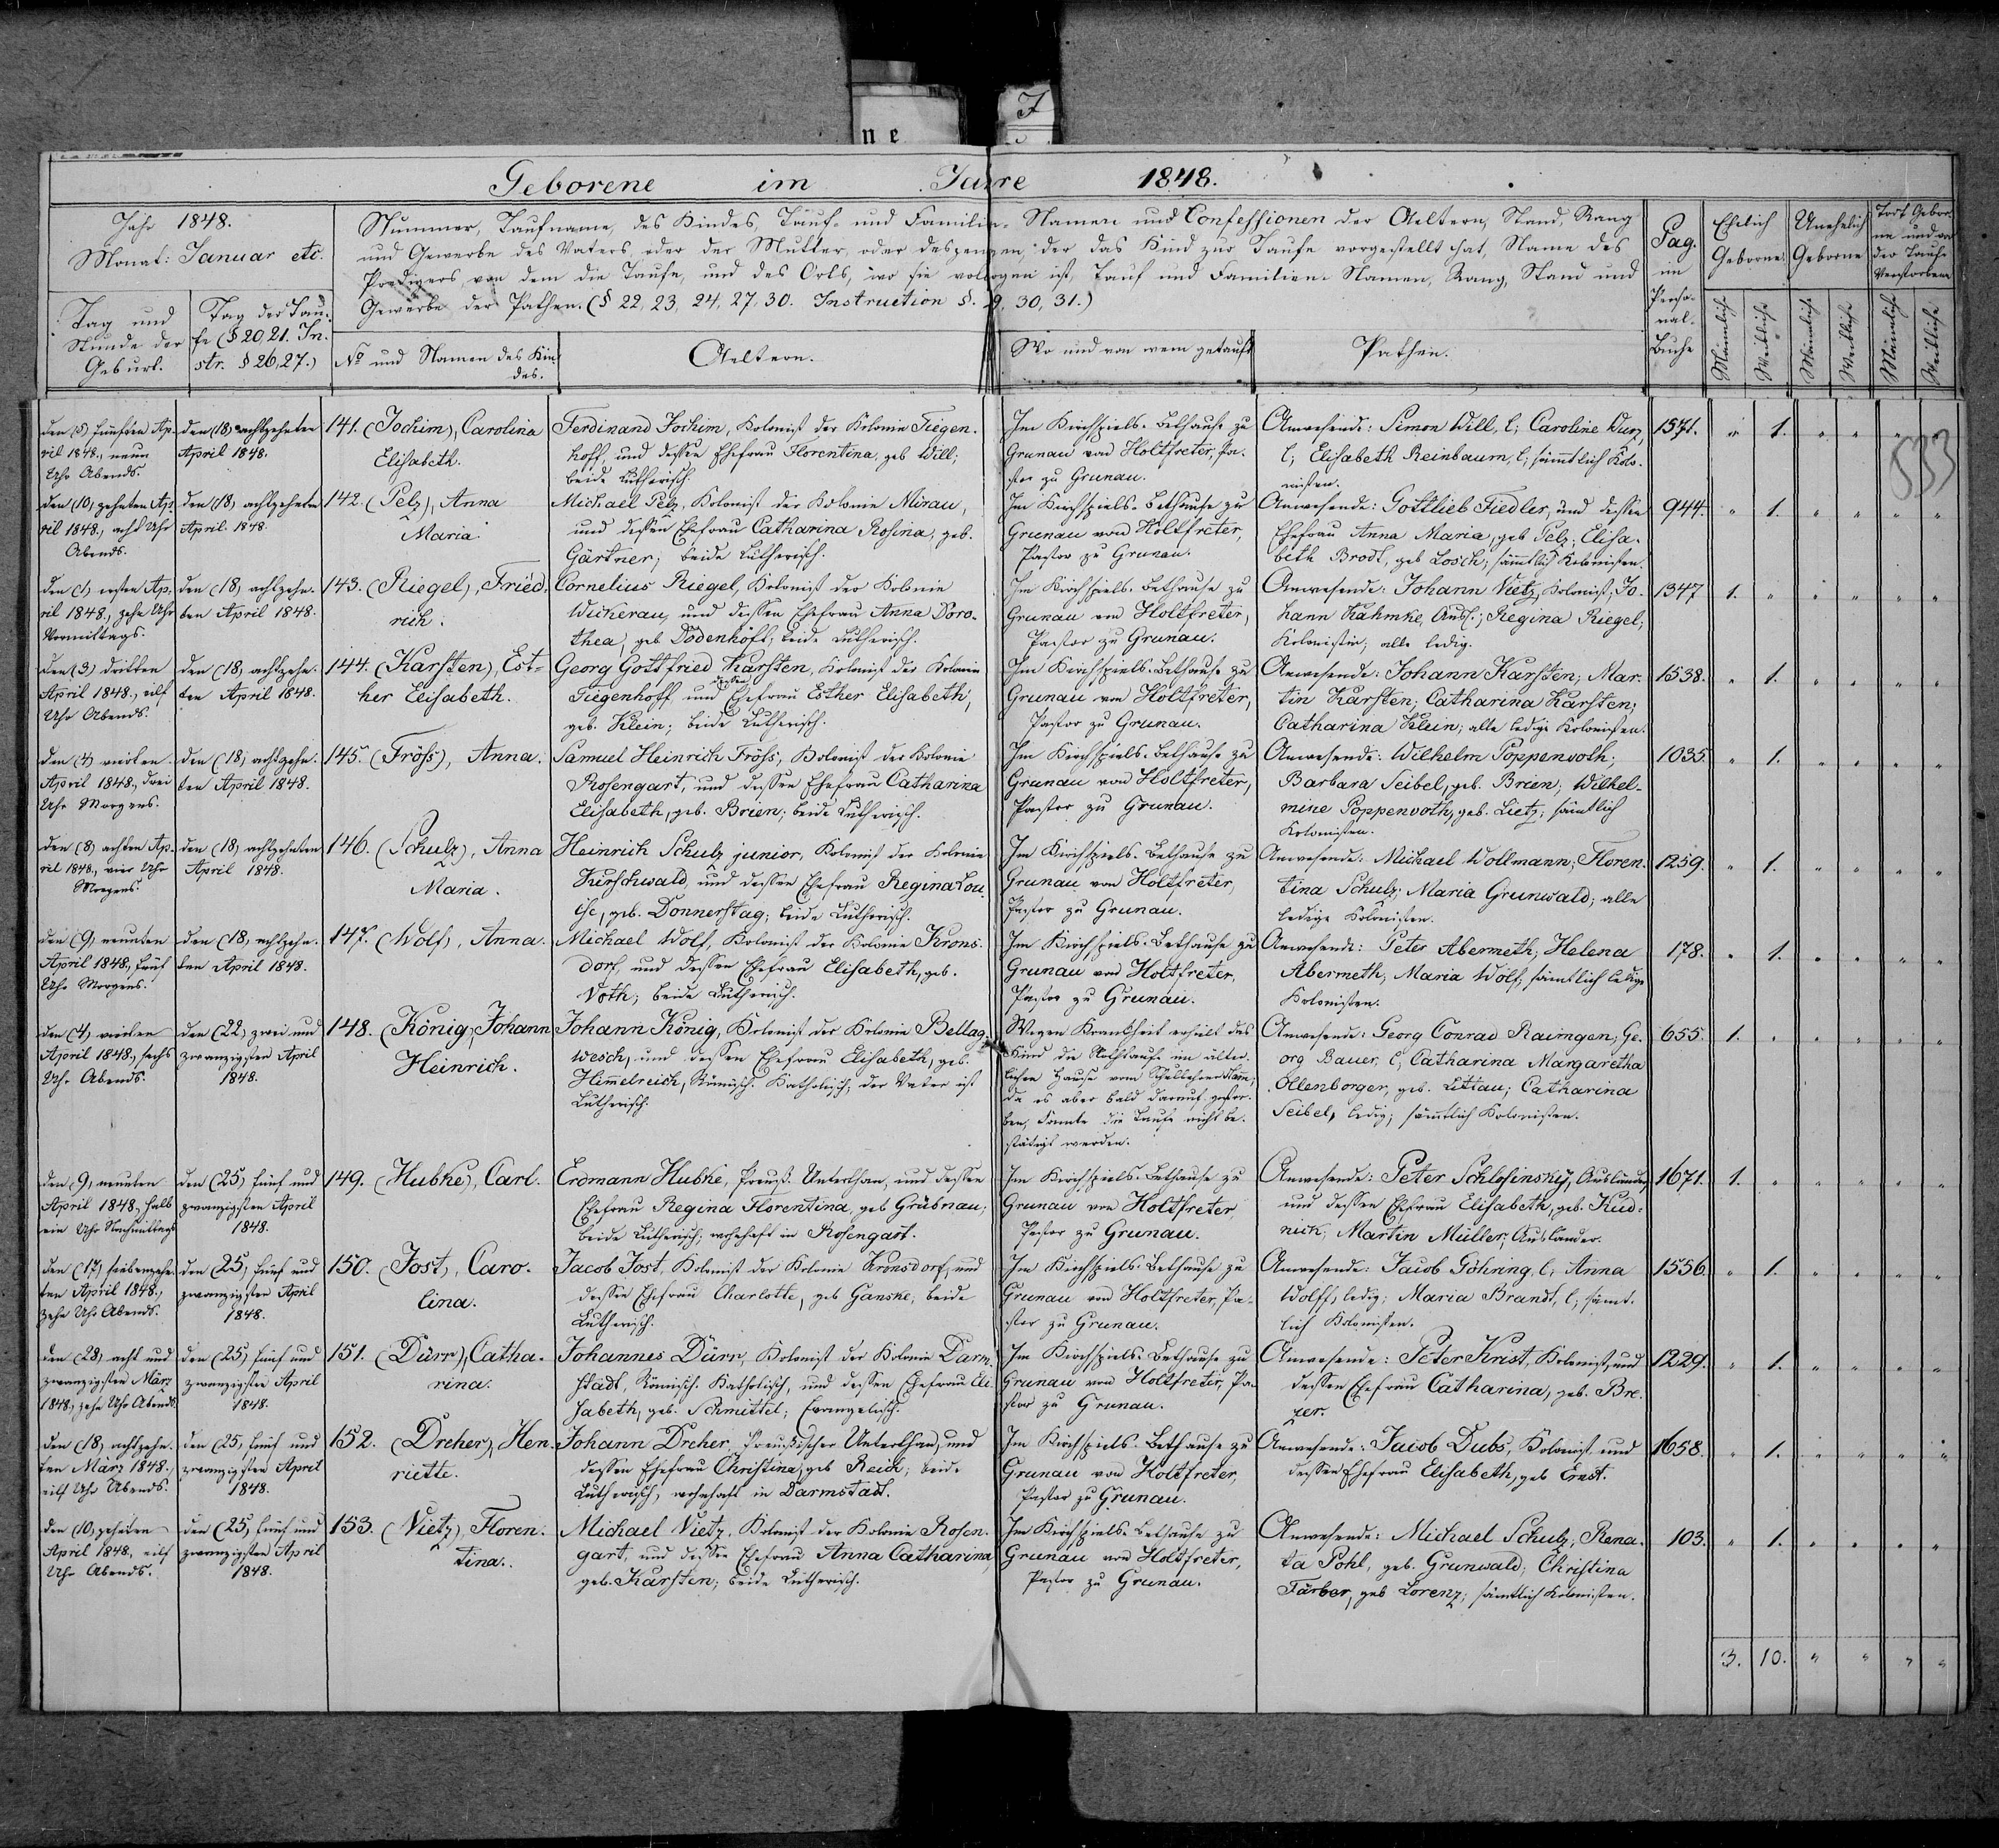 ne
F
Geborene im Jahre 1848.
Jahr 1848.
Monat: Januar etc.
Tag und
Stunde der
Geburt.
Tag der Tau-
fe (§ 20, 21. In-
str. § 26, 27.)
Nummer, Taufname, des Kindes, Tauf- und Familien-Namen und Confessionen der Aeltern, Stand, Rang
und Gewerbe des Vaters oder der Mutter, oder desjenigen, der das Kind zur Taufe vorgestellt hat, Name des
Predigers von dem die Taufe, und des Orts, wo sie vollzogen ist, Tauf und Familien-Namen, Rang, Stand und
Gewerbe der Pathen. (§ 22, 23, 24, 27, 30. Instruction §. 29, 30, 31.)
No und Namen des Kin-
des.
Aeltern.
Wo und von wem getauft
Pathen.
Pag.
im
Perso-
nal-
Buche
Ehelich
Geborne.
Unehelich
Geborne
Todt Gebor-
ne und vor
der Taufe
Verstorbene
Männliche
Weibliche
Männliche
Weibliche
Männliche
Weibliche
533
den (5) fünften Ap-
ril 1848., neun
Uhr Abends.
den (18) achtzehnten
April 1848.
141. (Jochim), Carolina
Elisabeth.
Ferdinand Jochim, Kolonist der Kolonie Tiegen-
hoff, und dessen Ehefrau Florentina, geb Will;
beide Lutherisch.
Im Kirchspiels-Bethause zu
Grunau von Holtfreter, Pa-
stor zu Grunau.
Anwesende: Simon Will, l; Caroline Wurz,
l; Elisabeth Reinbaum, l; sämmtlich Kolo-
nisten.
1571. " 1. " " "
den (10) zehnten Ap-
ril 1848., acht Uhr
Abends.
den (18) achtzehnten
April 1848.
142. (Pelz), Anna
Maria.
Michael Pelz, Kolonist der Kolonie Mirau,
und dessen Ehefrau Catharina Rosina, geb.
Gärtner; beide Lutherisch.
Im Kirchspiels-Bethause zu
Grunau von Holtfreter,
Pastor zu Grunau.
Anwesende: Gottlieb Fiedler, und dessen
Ehefrau Anna Maria, geb Pelz; Elisa-
beth Brodt, geb Losch; sämmtlich Kolonisten.
944. " 1. " " " "
den (1) ersten Ap-
ril 1848., zehn Uhr
Vormittags.
den (18) achtzehn-
ten April 1848.
143. (Riegel), Fried-
rich.
Cornelius Riegel, Kolonist der Kolonie
Wickerau, und dessen Ehefrau Anna Doro-
thea, geb Dodenhöft; beide Lutherisch.
Im Kirchspiels-Bethause zu
Grunau von Holtfreter,
Pastor zu Grunau.
Anwesende: Johann Vietz, Kolonist; Jo-
hann Kahmke, Ausl.; Regina Riegel,
Kolonistin; alle ledig.
1347 1. " " " " "
den (3) dritten
April 1848., eilf
Uhr Abends.
den (18) achtzehn-
ten April 1848.
144. (Karsten), Est-
her Elisabeth.
Georg Gottfried Karsten, Kolonist der Kolonie
Tiegenhoff und dessen Ehefrau Esther Elisabeth,
geb. Klein; beide Lutherisch.
Im Kirchspiels-Bethause zu
Grunau von Holtfreter,
Pastor zu Grunau.
Anwesende: Johann Karsten; Mar-
tin Karsten; Catharina Karsten;
Catharina Klein; alle ledige Kolonisten.
1538. " 1. " " " "
den (4) vierten
April 1848., drei
Uhr Morgens.
den (18) achtzehn-
ten April 1848.
145. (Fröss), Anna.
Samuel Heinrich Fröss, Kolonist der Kolonie
Rosengart, und dessen Ehefrau Catharina
Elisabeth, geb. Brien; beide Lutherisch.
Im Kirchspiels-Bethause zu
Grunau von Holtfreter,
Pastor zu Grunau.
Anwesende: Wilhelm Poppenvoth;
Barbara Seibel, geb. Brien; Wilhel-
mine Poppenvoth, geb. Lietz; sämtlich
Kolonisten.
1035. " 1. " " " "
den (8) achten Ap-
ril 1848., vier Uhr
Morgens.
den (18) achtzehnten
April 1848.
146. (Schulz), Anna
Maria.
Heinrich Schulz junior, Kolonist der Kolonie
Kirschwald, und dessen Ehefrau Regina Lou-
ise, geb. Donnerstag; beide Lutherisch.
Im Kirchspiels-Bethause zu
Grunau von Holtfreter,
Pastor zu Grunau.
Anwesende: Michael Wollmann; Floren-
tina Schulz; Maria Grunwald; alle
ledige Kolonisten.
1259. " 1. " " " "
den (9) neunten
April 1848., fünf
Uhr Morgens.
den (18) achtzehn-
ten April 1848.
147. (Wolf), Anna.
Michael Wolf, Kolonist der Kolonie Krons-
dorf, und dessen Ehefrau Elisabeth, geb.
Voth; beide Lutherisch.
Im Kirchspiels-Bethause zu
Grunau von Holtfreter,
Pastor zu Grunau.
Anwesende: Peter Abermeth; Helena
Abermeth; Maria Wolf; sämtlich ledige
Kolonisten.
178. " 1. " " " "
den (4) vierten
April 1848., sechs
Uhr Abends.
den (22) zwei und
zwanzigsten April
1848.
148. (König), Johann
Heinrich.
Johann König, Kolonist der Kolonie Bellag-
wesch, und dessen Ehefrau Elisabeth, geb.
Himmelreich, Römisch-Katholisch; der Vater ist
Lutherisch.
Wegen Krankheit erhielt das
Kind die Nothtaufe im älter-
lichen Hause vom Schullehrer Hamm;
da es aber bald darauf gestor-
ben, konnte die Taufe nicht be-
stätigt werden.
Anwesende: Georg Conrad Raimgen; Ge-
org Bauer, l; Catharina Margaretha
Ollenborger, geb. Littau; Catharina
Seibel, ledig; sämtlich Kolonisten.
655. 1. " " " " "
den (9) neunten
April 1848, halb
ein Uhr Nachmittags
den (25) fünf und
zwanzigsten April
1848.
149. (Hubke), Carl.
Erdmann Hubke, Preuß. Unterthan, und dessen
Ehefrau Regina Florentina, geb Grübnau;
beide Lutherisch; wohnhaft in Rosengart.
Im Kirchspiels-Bethause zu
Grunau von Holtfreter,
Pastor zu Grunau.
Anwesende: Peter Schlesinsky, Ausländer,
und dessen Ehefrau Elisabeth, geb. Kud-
nick; Martin Müller, Ausländer.
1671. 1. " " " " "
den (17) siebenzehn-
ten April 1848.,
zehn Uhr Abends.
den (25) fünf und
zwanzigsten April
1848.
150. (Jost), Caro-
lina.
Jacob Jost, Kolonist der Kolonie Kronsdorf, und
dessen Ehefrau Charlotte, geb Ganske; beide
Lutherisch.
Im Kirchspiels-Bethause zu
Grunau von Holtfreter, Pa-
stor zu Grunau.
Anwesende: Jacob Göhring, l; Anna
Wolff, ledig; Maria Brandt, l; sämt-
lich Kolonisten.
1556. " 1. " " " "
den (28) acht und
zwanzigsten März
1848, zehn Uhr Abends.
den (25) fünf und
zwanzigsten April
1848.
151. (Dürr), Catha-
rina.
Johannes Dürr, Kolonist der Kolonie Darm-
stadt, Römisch-Katholisch, und dessen Ehefrau Eli-
sabeth, geb. Schmittel; Evangelisch.
Im Kirchspiels-Bethause zu
Grunau von Holtfreter, Pa-
stor zu Grunau.
Anwesende: Peter Krist, Kolonist, und
dessen Ehefrau Catharina, geb. Bre-
zer.
1229. " 1. " " " "
den (18) achtzehn-
ten März 1848.,
eilf Uhr Abends.
den (25) fünf und
zwanzigsten April
1848.
152. (Dreher), Hen-
riette.
Johann Dreher, Preußischer Unterthan, und
dessen Ehefrau Christina, geb Reich; beide
Lutherisch, wohnhaft in Darmstadt.
Im Kirchspiels-Bethause zu
Grunau von Holtfreter,
Pastor zu Grunau.
Anwesende: Jacob Dubs, Kolonist und
dessen Ehefrau Elisabeth, geb Ernst.
1658. " 1. " " " "
den (10) zehnten
April 1848, eilf
Uhr Abends.
den (25) fünf und
zwanzigsten April
1848.
153. (Vietz), Floren-
tina.
Michael Vietz, Kolonist der Kolonie Rosen-
gart, und dessen Ehefrau Anna Catharina,
geb. Karsten; beide Lutherisch.
Im Kirchspiels-Bethause zu
Grunau von Holtfreter,
Pastor zu Grunau.
Anwesende: Michael Schulz; Rena-
ta Pohl, geb. Grunwald; Christina
Färber, geb Lorenz; sämtlich Kolonisten.
103. " 1. " " " "
3. 10. " " " "